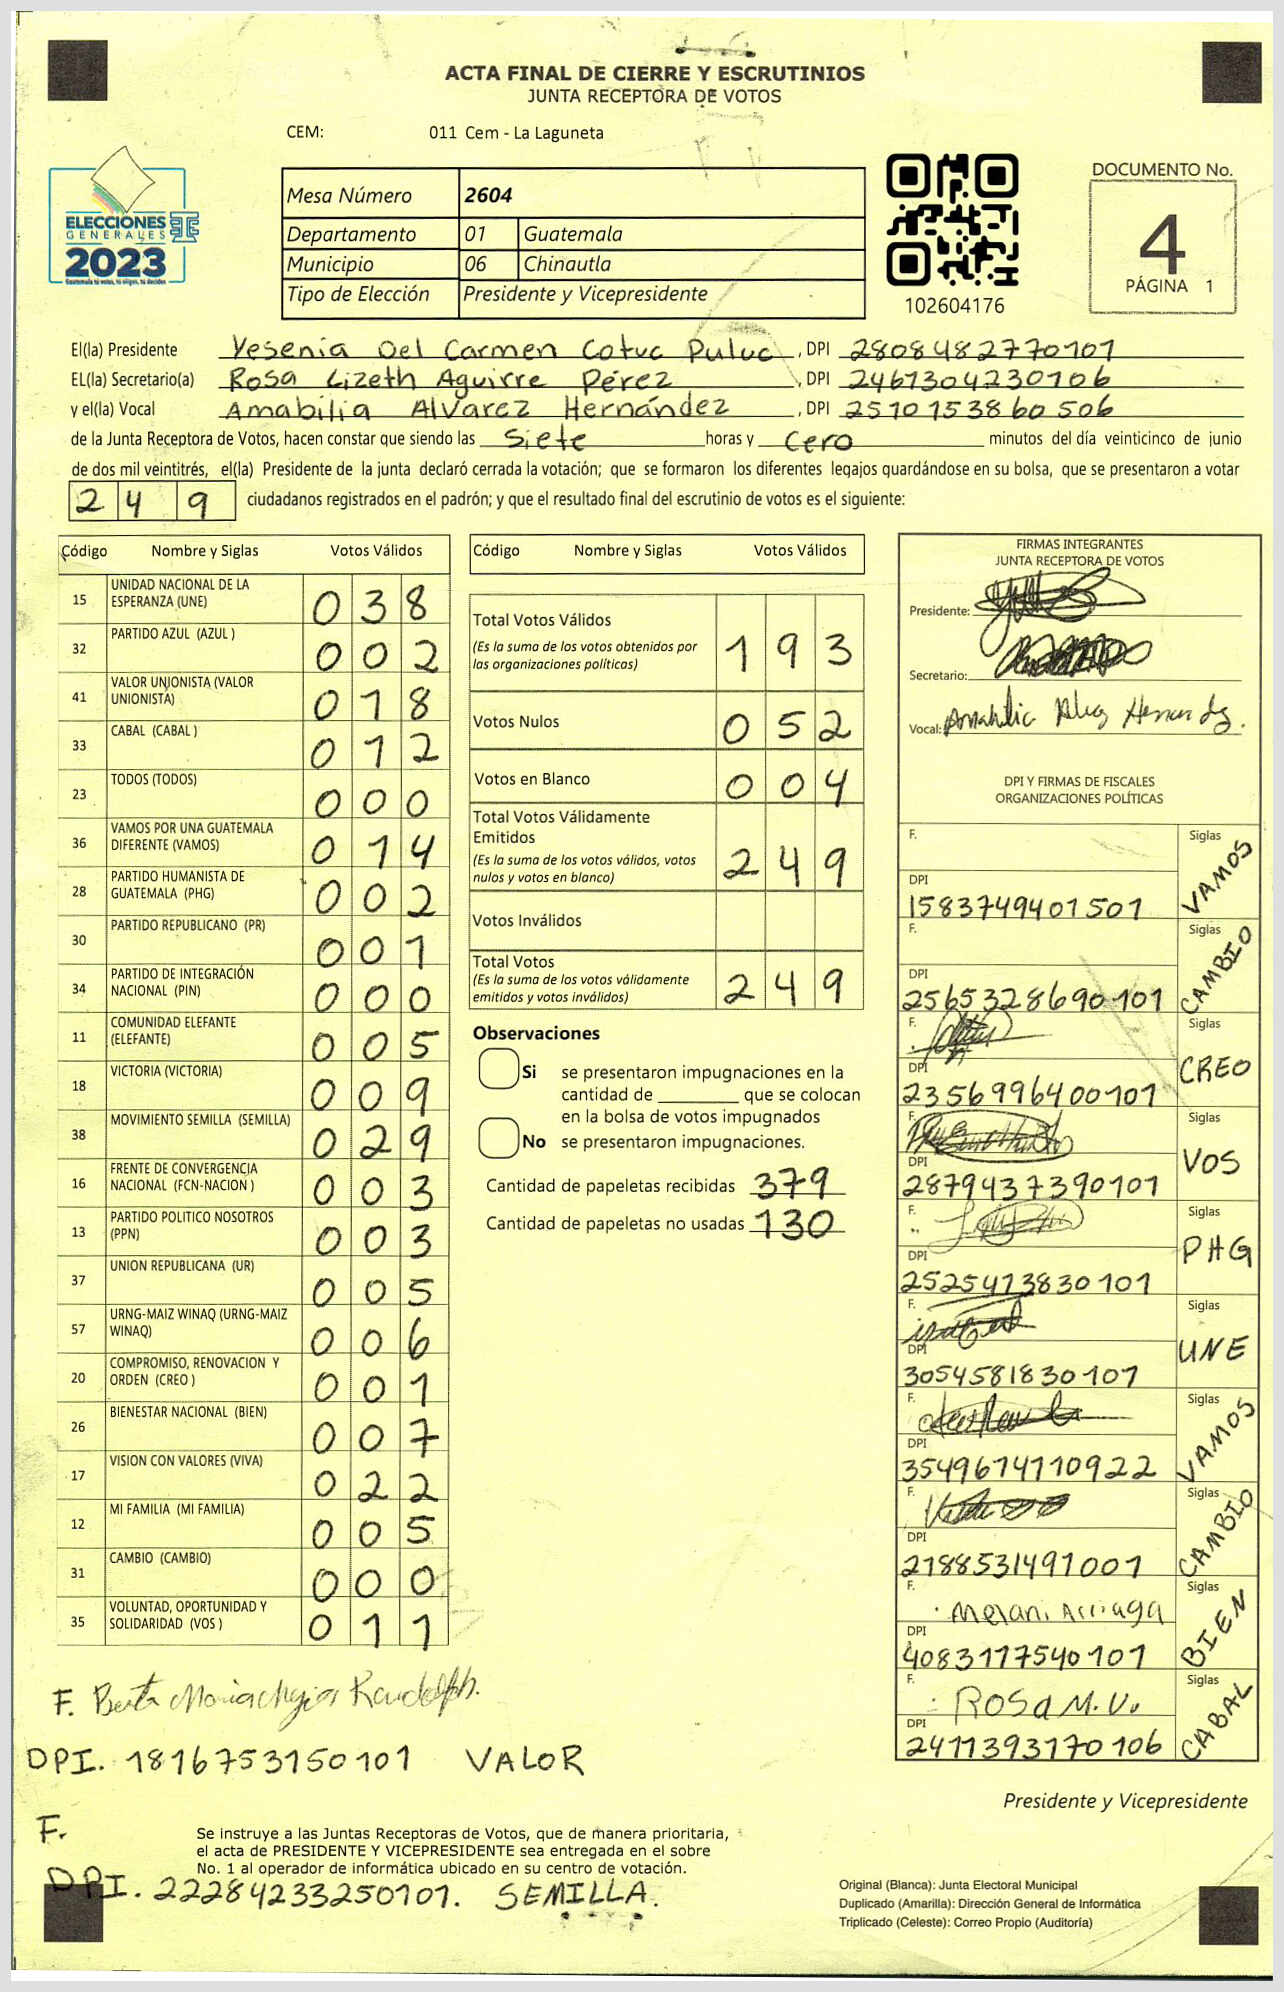 ACTA FINAL DE CIERRE Y ESCRUTINIOS
JUNTA RECEPTORA DE VOTOS
CEM: 011 Cem - La Laguneta
ELECCIONES
GENERALES
2023
Guatemala tú votas, tú eliges, tú decides
Mesa Número 2604
Departamento 01 Guatemala
Municipio 06 Chinautla
Tipo de Elección Presidente y Vicepresidente
102604176
DOCUMENTO No.
4
PÁGINA 1
El(la) Presidente Yesenia Del Carmen Cotuc Puluc, DPI 2808482770101
EL(la) Secretario(a) Rosa Lizeth Aguirre Pérez, DPI 2461304230106
y el(la) Vocal Amabilia Alvarez Hernández, DPI 2510153860506
de la Junta Receptora de Votos, hacen constar que siendo las Siete horas y Cero minutos del día veinticinco de junio
de dos mil veintitrés, el(la) Presidente de la junta declaró cerrada la votación; que se formaron los diferentes legajos guardándose en su bolsa, que se presentaron a votar
249 ciudadanos registrados en el padrón; y que el resultado final del escrutinio de votos es el siguiente:
Código Nombre y Siglas Votos Válidos
15 UNIDAD NACIONAL DE LA ESPERANZA (UNE) 038
32 PARTIDO AZUL (AZUL ) 002
41 VALOR UNIONISTA (VALOR UNIONISTA) 018
33 CABAL (CABAL ) 012
23 TODOS (TODOS) 000
36 VAMOS POR UNA GUATEMALA DIFERENTE (VAMOS) 014
28 PARTIDO HUMANISTA DE GUATEMALA (PHG) 002
30 PARTIDO REPUBLICANO (PR) 001
34 PARTIDO DE INTEGRACIÓN NACIONAL (PIN) 000
11 COMUNIDAD ELEFANTE (ELEFANTE) 005
18 VICTORIA (VICTORIA) 009
38 MOVIMIENTO SEMILLA (SEMILLA) 029
16 FRENTE DE CONVERGENCIA NACIONAL (FCN-NACION ) 003
13 PARTIDO POLITICO NOSOTROS (PPN) 003
37 UNION REPUBLICANA (UR) 005
57 URNG-MAIZ WINAQ (URNG-MAIZ WINAQ) 006
20 COMPROMISO, RENOVACION Y ORDEN (CREO ) 001
26 BIENESTAR NACIONAL (BIEN) 007
17 VISION CON VALORES (VIVA) 022
12 MI FAMILIA (MI FAMILIA) 005
31 CAMBIO (CAMBIO) 000
35 VOLUNTAD, OPORTUNIDAD Y SOLIDARIDAD (VOS ) 011
F. Berta Maria Mejia Randolph.
DPI. 1816753150101 VALOR
F.
DPI. 22284233250101. SEMILLA.
Código Nombre y Siglas Votos Válidos
Total Votos Válidos 193
(Es la suma de los votos obtenidos por
las organizaciones politicas)
Votos Nulos 052
Votos en Blanco 004
Total Votos Válidamente
Emitidos 249
(Es la suma de los votos válidos, votos
nulos y votos en blanco)
Votos Inválidos
Total Votos 249
(Es la suma de los votos válidamente
emitidos y votos inválidos)
Observaciones
Si se presentaron impugnaciones en la
cantidad de ________ que se colocan
en la bolsa de votos impugnados
No se presentaron impugnaciones.
Cantidad de papeletas recibidas 379
Cantidad de papeletas no usadas 130
FIRMAS INTEGRANTES
JUNTA RECEPTORA DE VOTOS
Presidente:
Secretario:
Vocal:
DPI Y FIRMAS DE FISCALES
ORGANIZACIONES POLÍTICAS
F. Siglas VAMOS
DPI 1583749401501
F. Siglas CAMBIO
DPI 2565328690101
F. Siglas CREO
DPI 2356996400101
F. Siglas VOS
DPI 2879437390101
F. Siglas PHG
DPI 2525413830101
F. Siglas UNE
DPI 3054581830101
F. Siglas VAMOS
DPI 3549614110922
F. Siglas CAMBIO
DPI 2188531491001
F. Melani Arriaga Siglas BIEN
DPI 4083117540101
F. ROSA M.V. Siglas CABAL
DPI 2411393170106
Presidente y Vicepresidente
Se instruye a las Juntas Receptoras de Votos, que de manera prioritaria,
el acta de PRESIDENTE Y VICEPRESIDENTE sea entregada en el sobre
No. 1 al operador de informática ubicado en su centro de votación.
Original (Blanca): Junta Electoral Municipal
Duplicado (Amarilla): Dirección General de Informática
Triplicado (Celeste): Correo Propio (Auditoría)